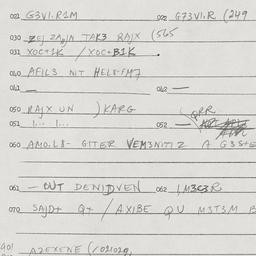 021 G3VI.R1M 028 G73VI.R (249
030 ZEJ ZAGIN TAK3 RAJX (565
031 XOC+1K / XOC+B1K .
040 AFIL3 NIT HEL8-FM7
041 — 042 —
050 RAJX UN ) KARG RR
051 1... 1... 052 —
060 AMO.L8- GITER VEM3NITIZ A G3S+E
061 — OUT DENIDVEN 062 1M3C3R
070 SAJD+ Q+ / AXIBE QU M3T3M B
A2EXENE (/02102Q,